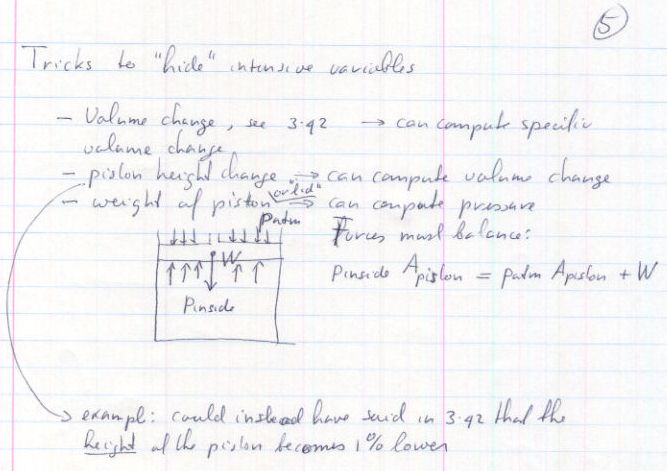 5
Tricks to "hide" intensive variables
- Volume change, see 3.92 → can compute specific
volume change.
- piston height change ⇒ can compute volume change
- weight of piston "or lid" ⇒ can compute pressure
Patm
Forces must balance:
W
Pinside Apiston = Patm Apiston + W
Pinside
→ example: could instead have said in 3.92 that the
height of the piston becomes 1% lower